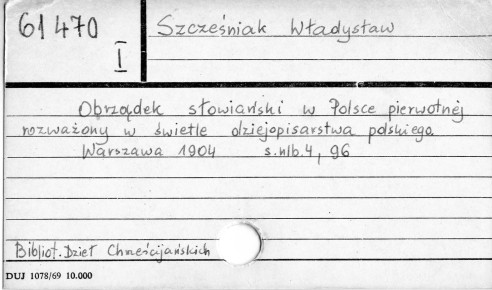 61470
I
Szcześniak Władysław
Obrządek słowiański w Polsce pierwotnéj
rozważony w świetle dziejopisarstwa polskiego.
Warszawa 1904 s.nlb.4, 96
Bibliot. Dzieł Chrześcijańskich
DUJ 1078/69 10.000